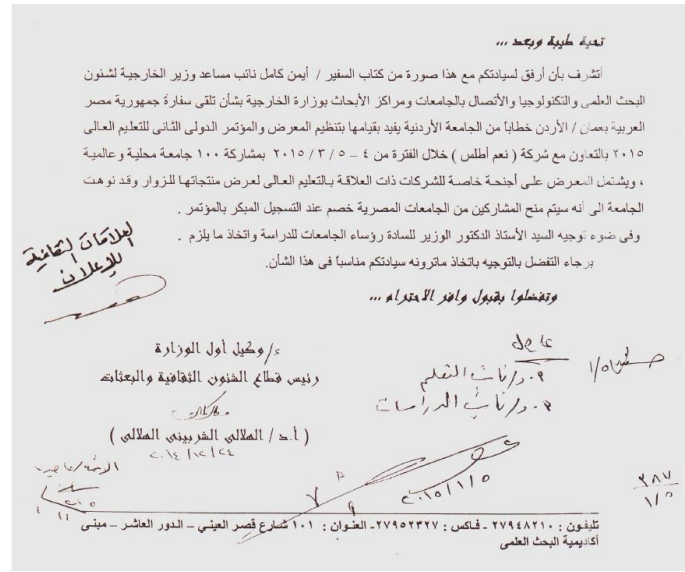 تحية طيبة وبعد ...
أتشرف بأن أرفق لسيادتكم مع هذا صورة من كتاب السفير / أيمن كامل نائب مساعد وزير الخارجية لشئون
البحث العلمى والتكنولوجيا والأتصال بالجامعات ومراكز الأبحاث بوزارة الخارجية بشأن تلقى سفارة جمهورية مصر
العربية بعمان / الأردن خطاباً من الجامعة الأردنية يفيد بقيامها بتنظيم المعرض والمؤتمر الدولى الثانى للتعليم العالى
٢٠١٥ بالتعاون مع شركة ( نعم أطلس ) خلال الفترة من ٤ – ٥ / ٣ / ٢٠١٥ بمشاركة ١٠٠ جامعة محلية وعالمية
، ويشتمل المعرض على أجنحة خاصة للشركات ذات العلاقة بالتعليم العالى لعرض منتجاتها للزوار وقد نوهت
الجامعة الى أنه سيتم منح المشاركين من الجامعات المصرية خصم عند التسجيل المبكر بالمؤتمر .
وفى ضوء توجيه السيد الأستاذ الدكتور الوزير للسادة رؤساء الجامعات للدراسة واتخاذ ما يلزم .
برجاء التفضل بالتوجيه باتخاذ ماترونه سيادتكم مناسباً فى هذا الشأن.
العلاقات الثقافية
للإعلان
وتفضلوا بقبول وافر الاحترام ...
عاجل
١/٥
ء/ وكيل أول الوزارة
رئيس قطاع الشئون الثقافية والبعثات
أ.د/ نائب التعلم
أ.د/ نائب الدراسات
( أ.د / الهلالى الشربينى الهلالى )
٢٠١٤/١٢/٢٤
٢٠١٥/١/٥
٣٨٧
١/٥
تليفون : ٢٧٩٤٨٢١٠ ـ فاكس : ٢٧٩٥٢٣٢٧ـ العنوان : ١٠١ شارع قصر العيني – الدور العاشر – مبنى
أكاديمية البحث العلمى